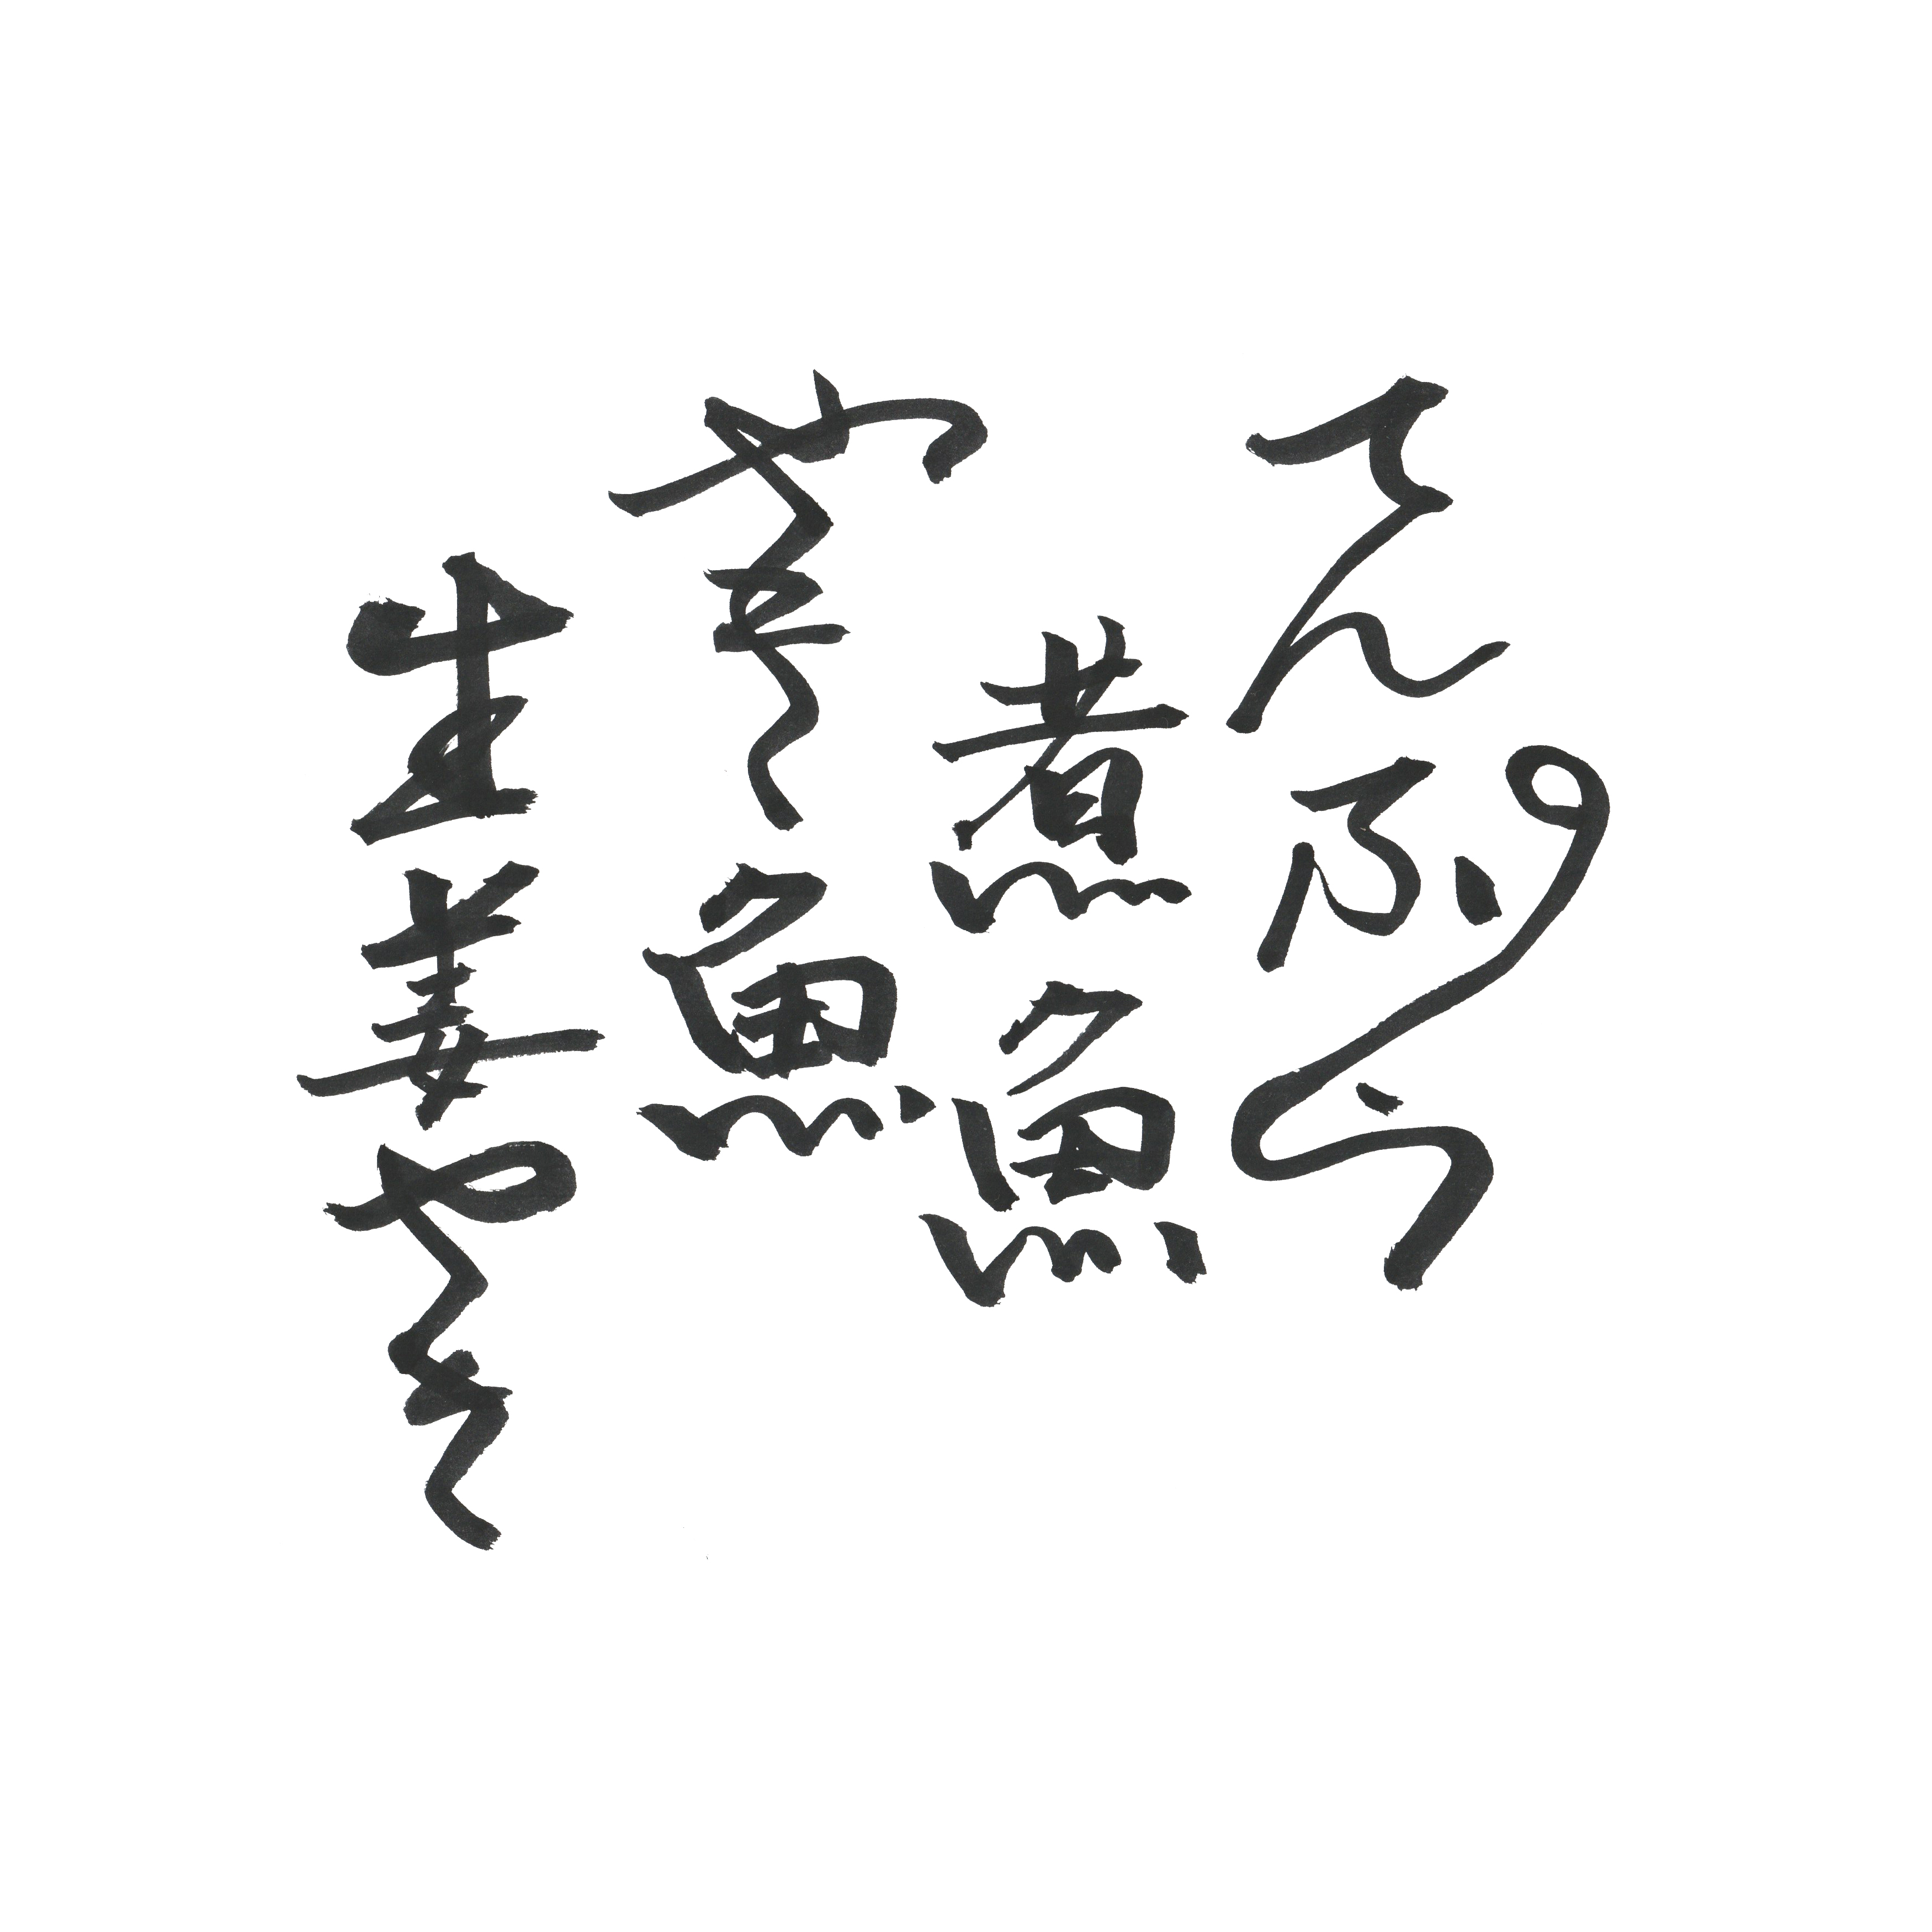 てんぷら
煮魚
やき魚
生姜やき